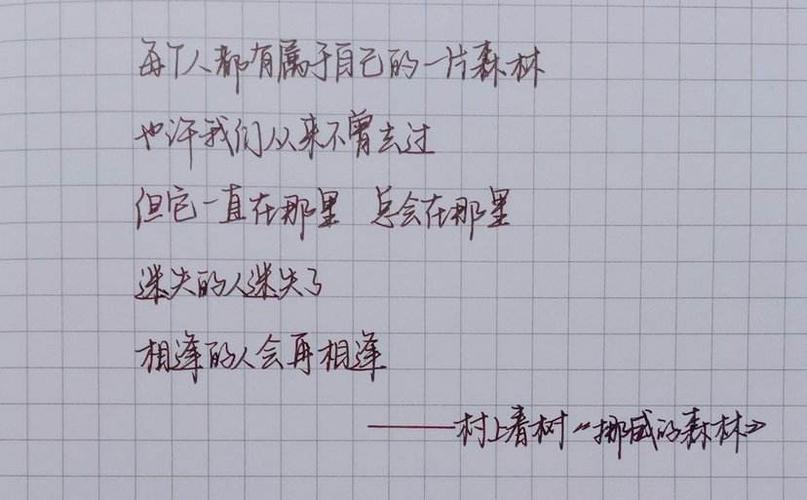 每个人都有属于自己的一片森林
也许我们从来不曾去过
但它一直在那里 总会在那里
迷失的人迷失了
相逢的人会再相逢
——村上春树《挪威的森林》